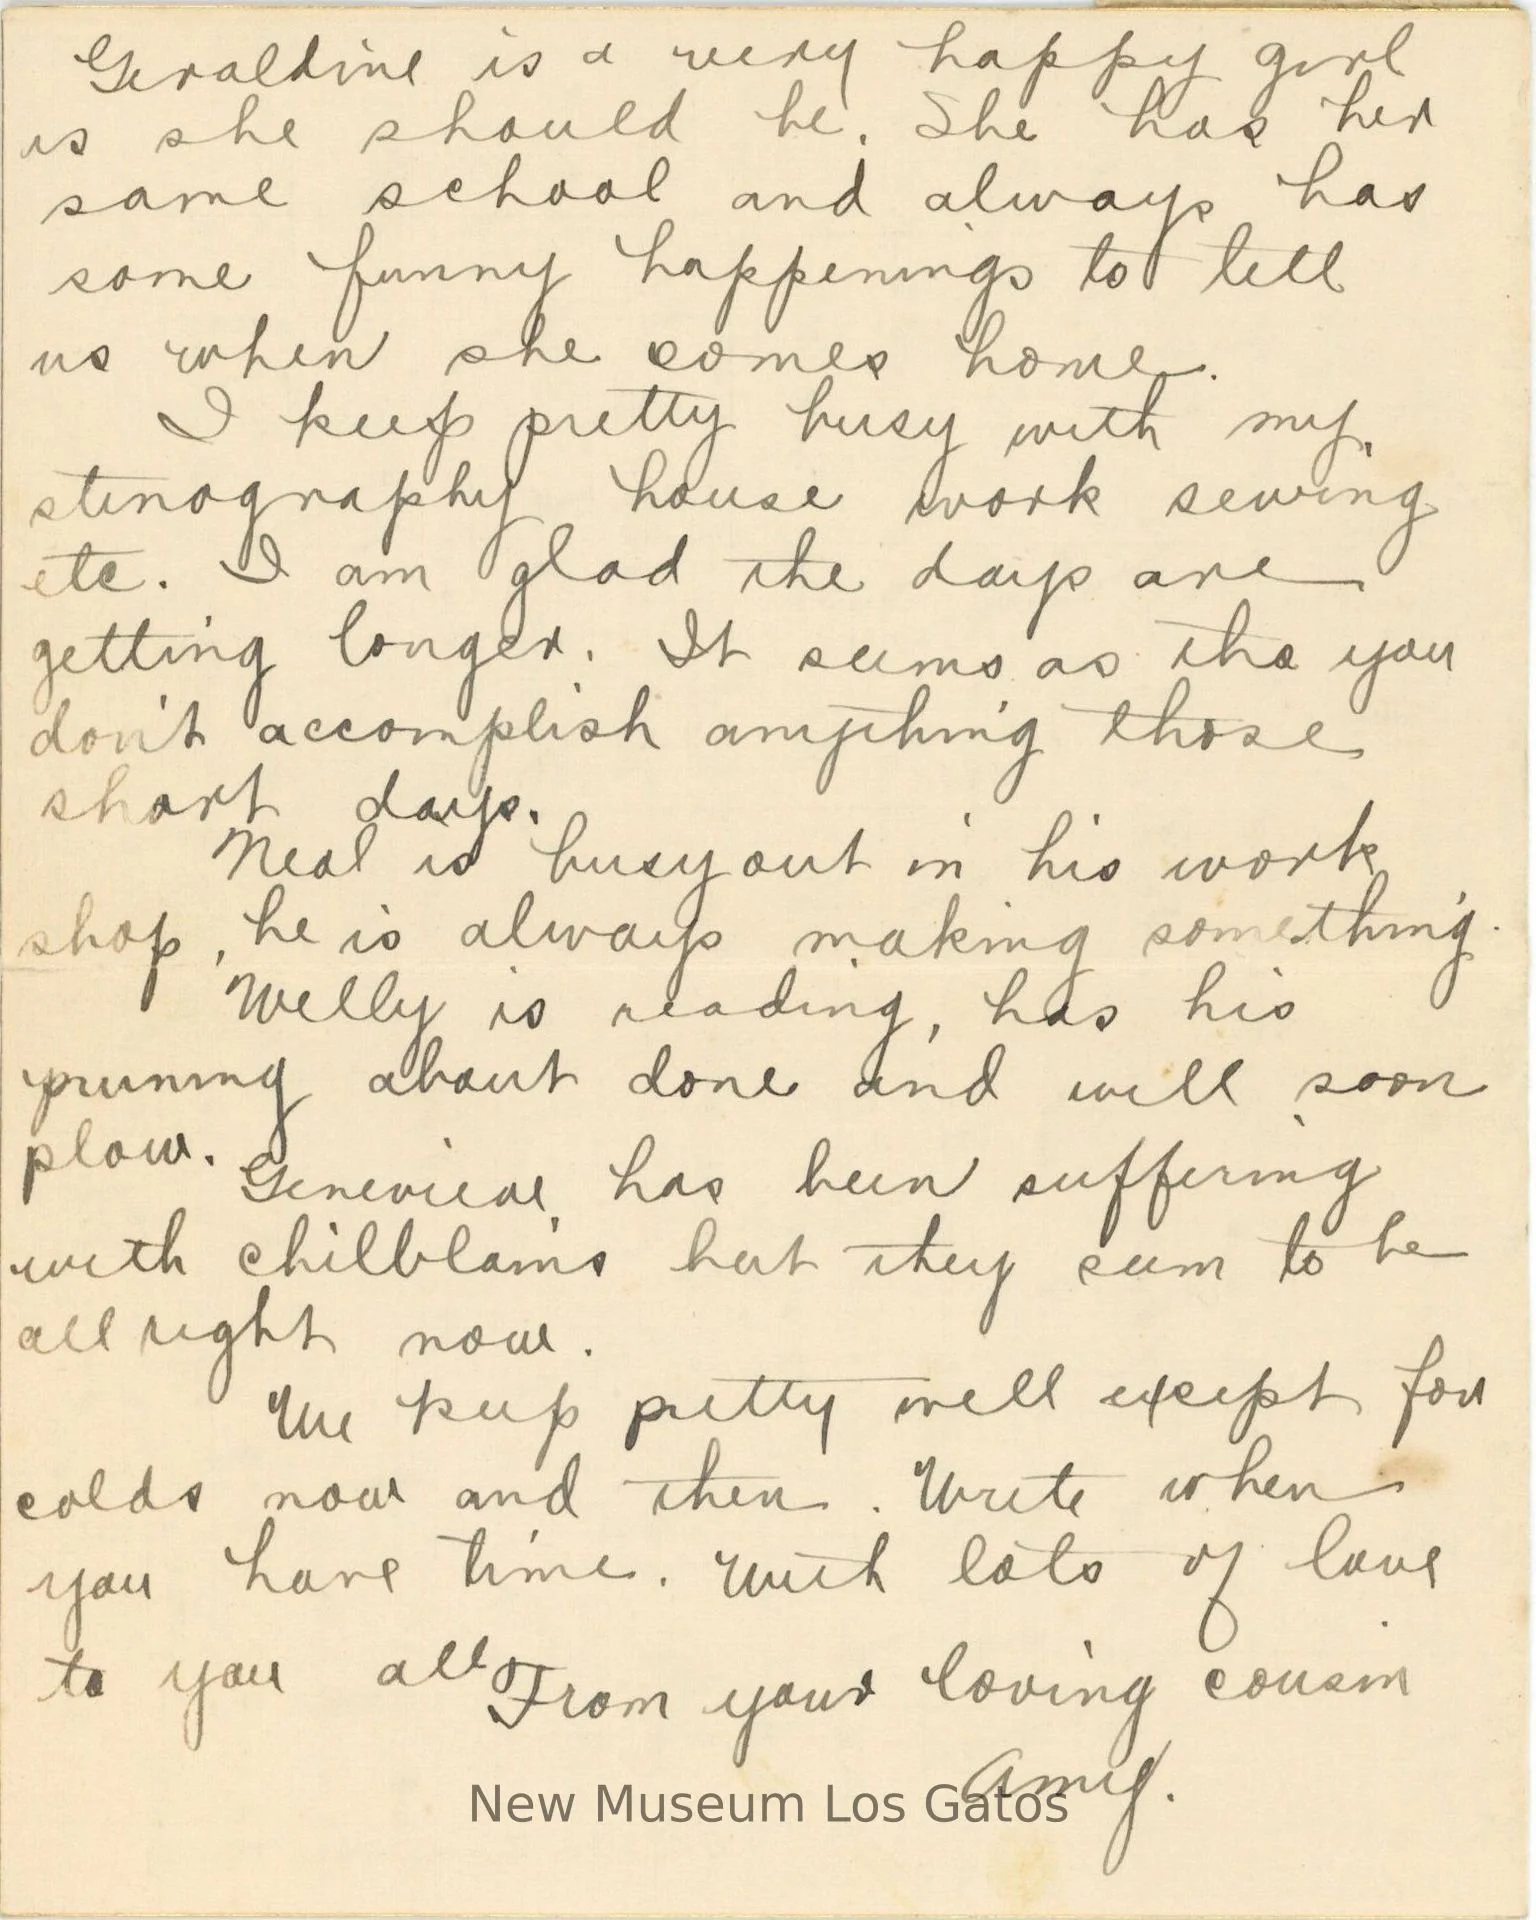 Geraldine is a very happy girl
is she should be. She has her
same school and always has
some funny happenings to tell
us when she comes home.
I keep pretty busy with my
stenography house work sewing
etc. I am glad the days are
getting longer. It seems as tho you
don't accomplish anything those
short days.
Neal is busy out in his work
shop, he is always making something.
Welly is reading, has his
pruning about done and will soon
plow.
Genevieve has been suffering
with chilblains but they seem to be
all right now.
We keep pretty well except for
colds now and then. Write when
you have time. With lots of love
to you all From your loving cousin
Amy.
New Museum Los Gatos